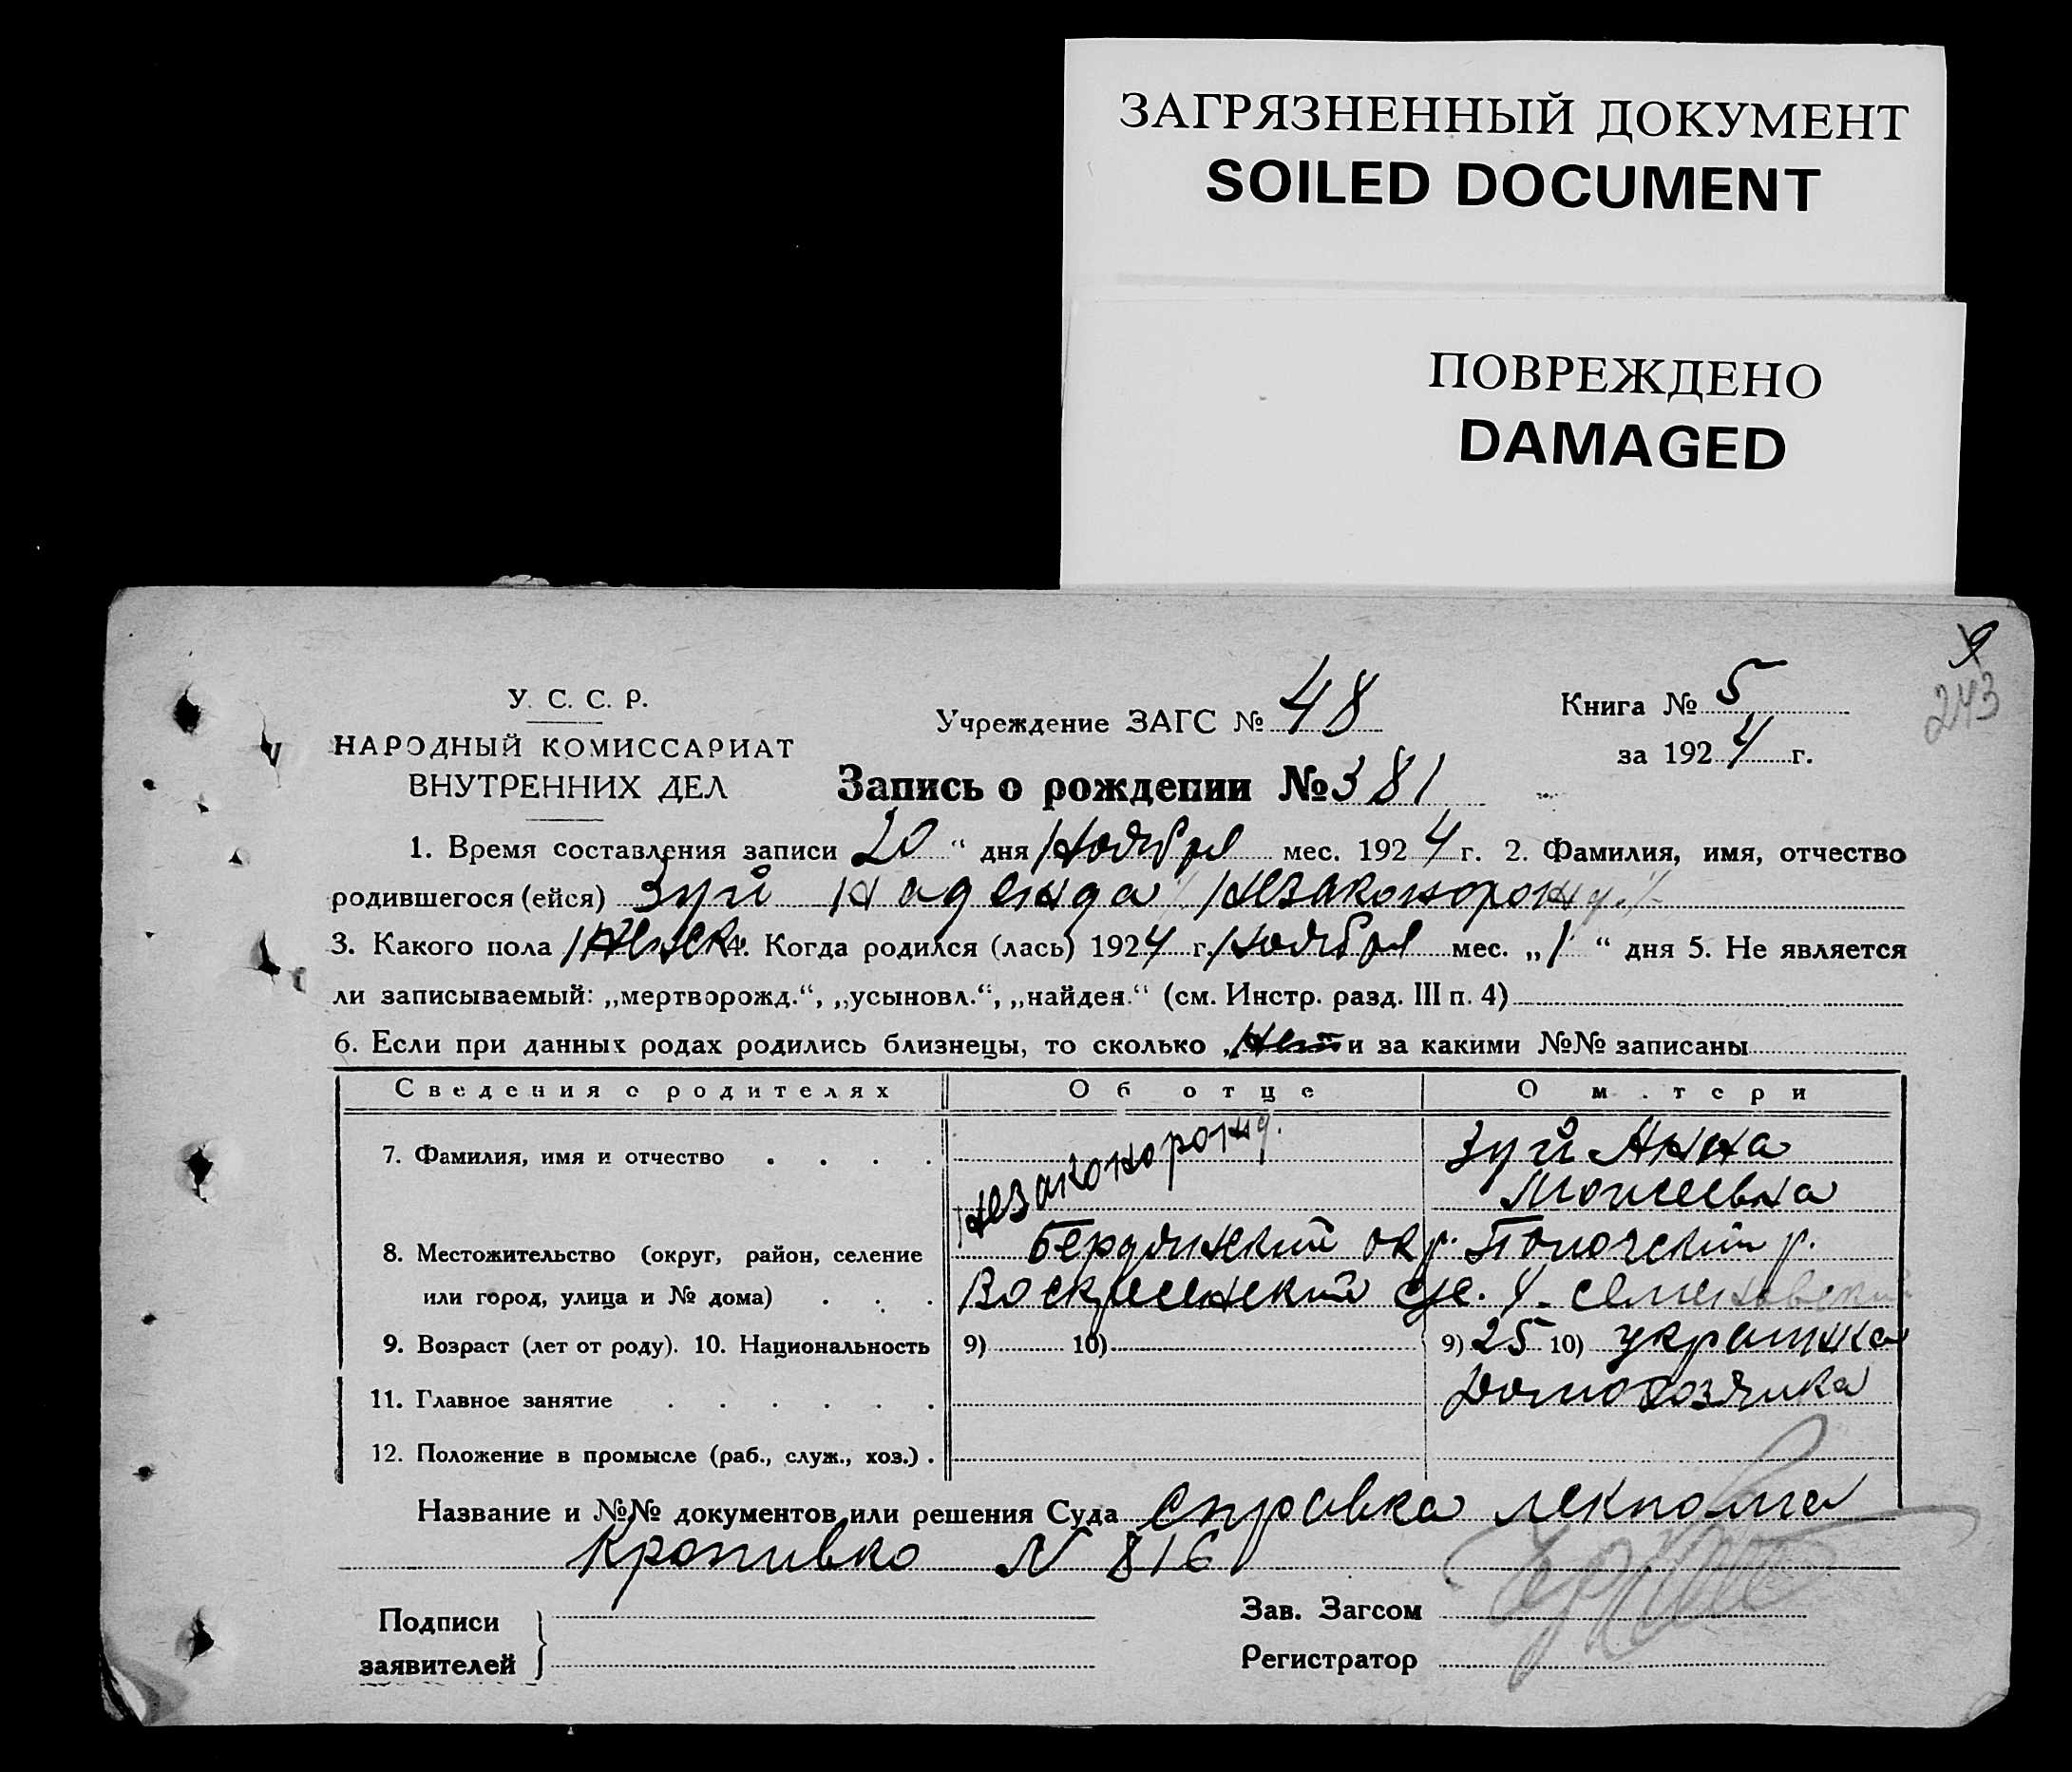 ЗАГРЯЗНЕННЫЙ ДОКУМЕНТ
SOILED DOCUMENT
ПОВРЕЖДЕНО
DAMAGED
9
243
У. С. С. Р.
НАРОДНЫЙ КОМИССАРИАТ
ВНУТРЕННИХ ДЕЛ
Учреждение ЗАГС № 48
Книга № 5
за 1924 г.
Запись о рождении № 381
1. Время составления записи 20 “ дня Ноября мес. 1924 г. 2. Фамилия, имя, отчество
родившегося (ейся) Зуй Надежда /Незаконорожд./
3. Какого пола Женск. 4. Когда родился (лась) 1924 г. Ноября мес. „ 1 “ дня 5. Не является
ли записываемый: „мертворожд.“, „усыновл.“, „найден.“ (см. Инстр. разд. III п. 4)
6. Если при данных родах родились близнецы, то сколько Нет и за какими №№ записаны
Сведения о родителях Об отце О м.тери
7. Фамилия, имя и отчество Незаконорожд. Зуй Анна
Моисеевна
8. Местожительство (округ, район, селение Бердянский окр. Пологский р.
или город, улица и № дома) Воскресенский с/с. х. Семеновский
9. Возраст (лет от роду). 10. Национальность 9) 10) 9) 25 10) украинка
11. Главное занятие Домохозяйка
12. Положение в промысле (раб., служ., хоз.)
Название и №№ документов или решения Суда Справка лекпома
Кропивко N 816
Подписи
заявителей
Зав. Загсом
Регистратор